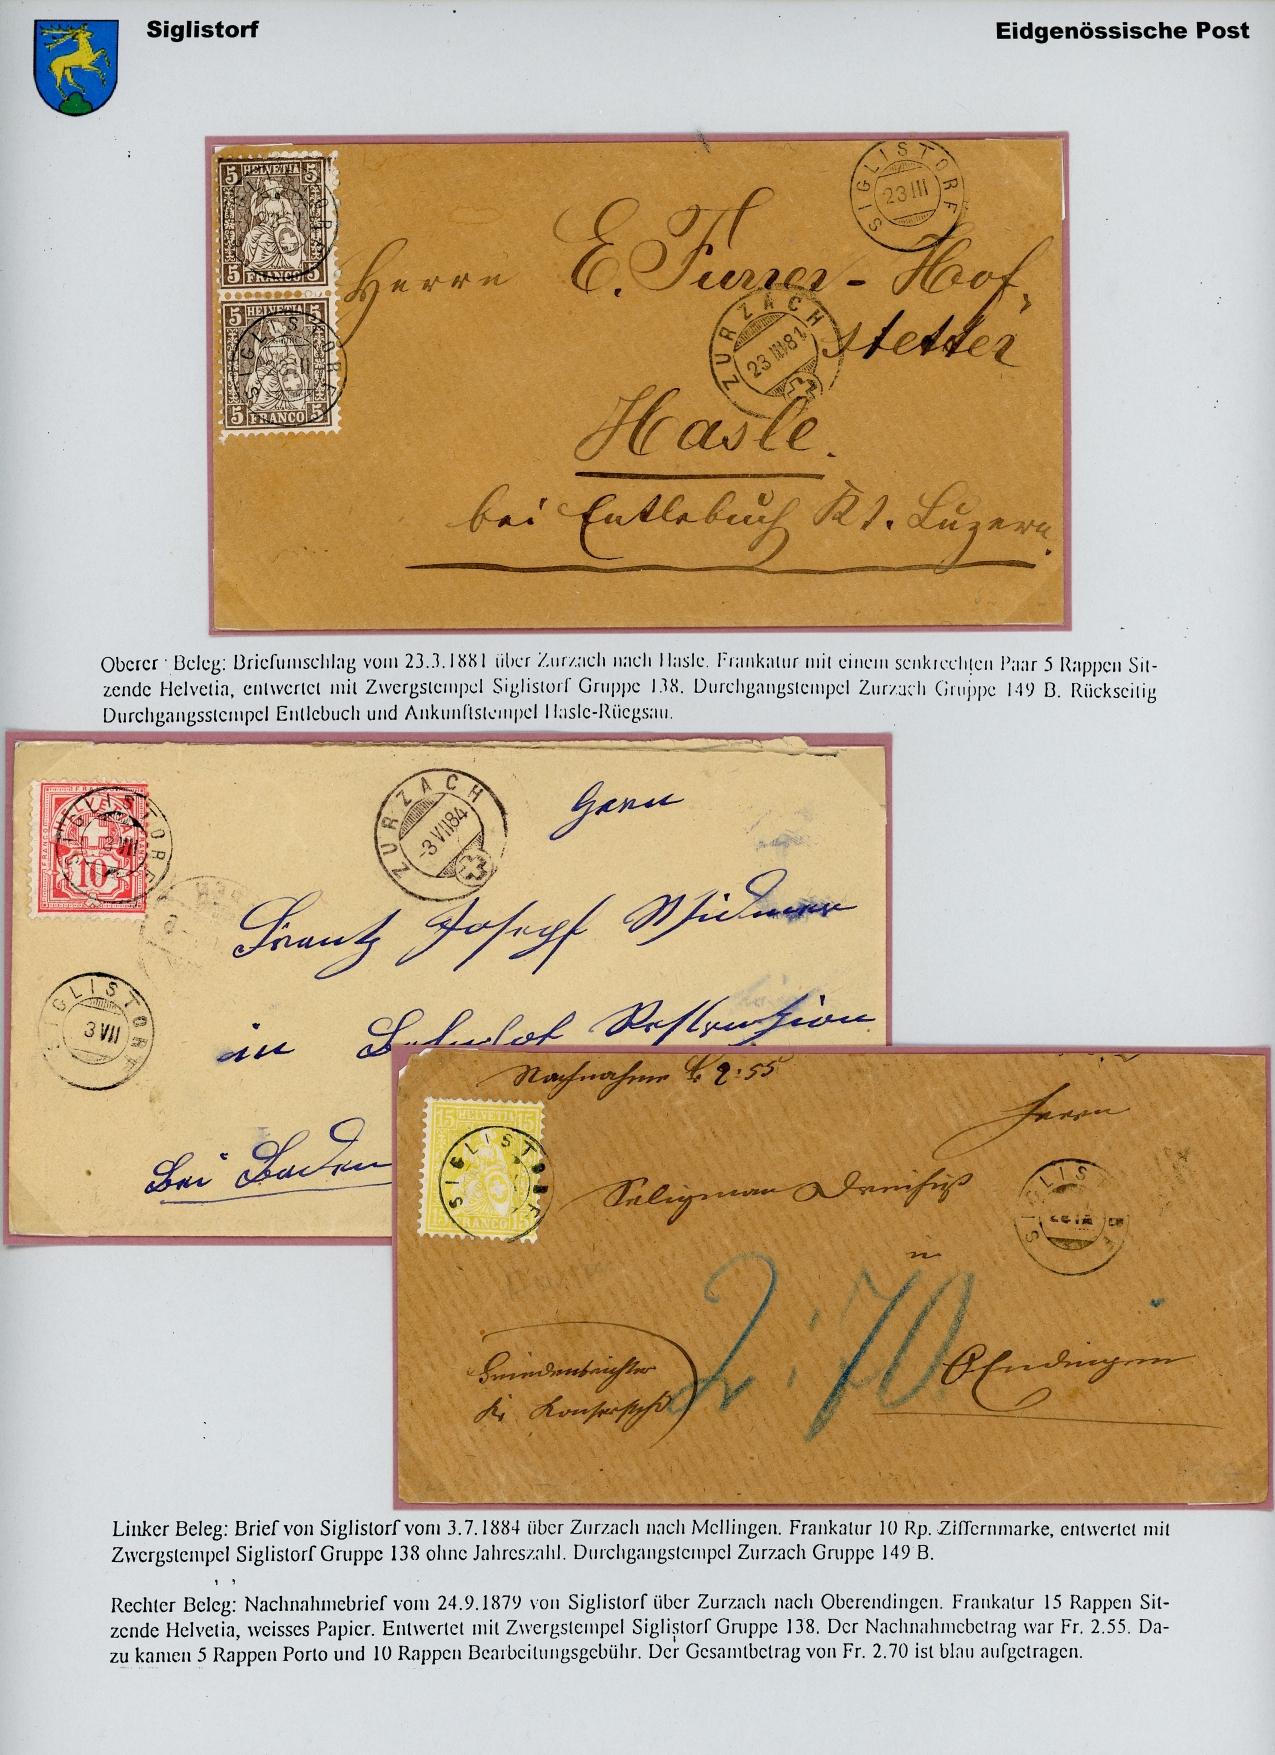 Siglistorf
Eidgenössische Post
SIGLISTORF
23 III
5 HELVETIA 5
5 FRANCO 5
5 HELVETIA 5
5 FRANCO 5
SIGLISTORF
Herrn E. Furrer-Hof-
stetter
ZURZACH
23 III 81
Hasle.
bei Entlebuch Kt. Luzern.
Oberer Beleg: Briefumschlag vom 23.3.1881 über Zurzach nach Hasle. Frankatur mit einem senkrechten Paar 5 Rappen Sit-
zende Helvetia, entwertet mit Zwergstempel Siglistorf Gruppe 138. Durchgangstempel Zurzach Gruppe 149 B. Rückseitig
Durchgangsstempel Entlebuch und Ankunftstempel Hasle-Rüegsau.
HELVETIA
10
SIGLISTORF
ZURZACH
-3 VII 84
Herrn
Frantz Josepf Widmer
SIGLISTORF
3 VII
in
Bei Baden
Nachnahme Fr 2:55
15 HELVETIA 15
15 FRANCO 15
SIGLISTORF
Herrn
Seligman Dreifuß
SIGLIS
in
2:70
Friedensrichter
OEndingen
Linker Beleg: Brief von Siglistorf vom 3.7.1884 über Zurzach nach Mellingen. Frankatur 10 Rp. Ziffernmarke, entwertet mit
Zwergstempel Siglistorf Gruppe 138 ohne Jahreszahl. Durchgangstempel Zurzach Gruppe 149 B.
Rechter Beleg: Nachnahmebrief vom 24.9.1879 von Siglistorf über Zurzach nach Oberendingen. Frankatur 15 Rappen Sit-
zende Helvetia, weisses Papier. Entwertet mit Zwergstempel Siglistorf Gruppe 138. Der Nachnahmebetrag war Fr. 2.55. Da-
zu kamen 5 Rappen Porto und 10 Rappen Bearbeitungsgebühr. Der Gesamtbetrag von Fr. 2.70 ist blau aufgetragen.